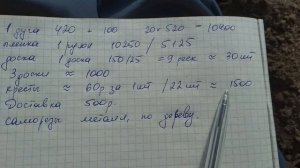 1 дуга 420 + 100 20 х 520 = 10400
пленка 1 рулон 10250 / 5125
доска 1 доска 150/25 = 9 реек ≈ 30 шт
3 доски ≈ 1000
кресты ≈ 60р за 1 шт / 22 шт ≈ 1500
Доставка 500р.
саморезы металл, по дереву.